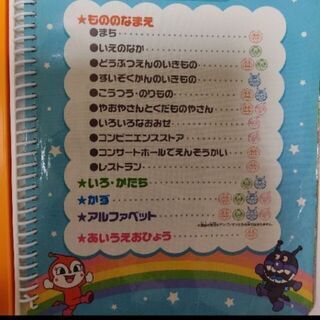 ★もののなまえ
●まち
●いえのなか
●どうぶつえんのいきもの
●すいぞくかんのいきもの
●こうつう・のりもの
●やおやさんとくだものやさん
●いろいろなおみせ
●コンビニエンスストア
●コンサートホールでえんそうかい
●レストラン
★いろ・かたち
★かず
★アルファベット
★あいうえおひょう